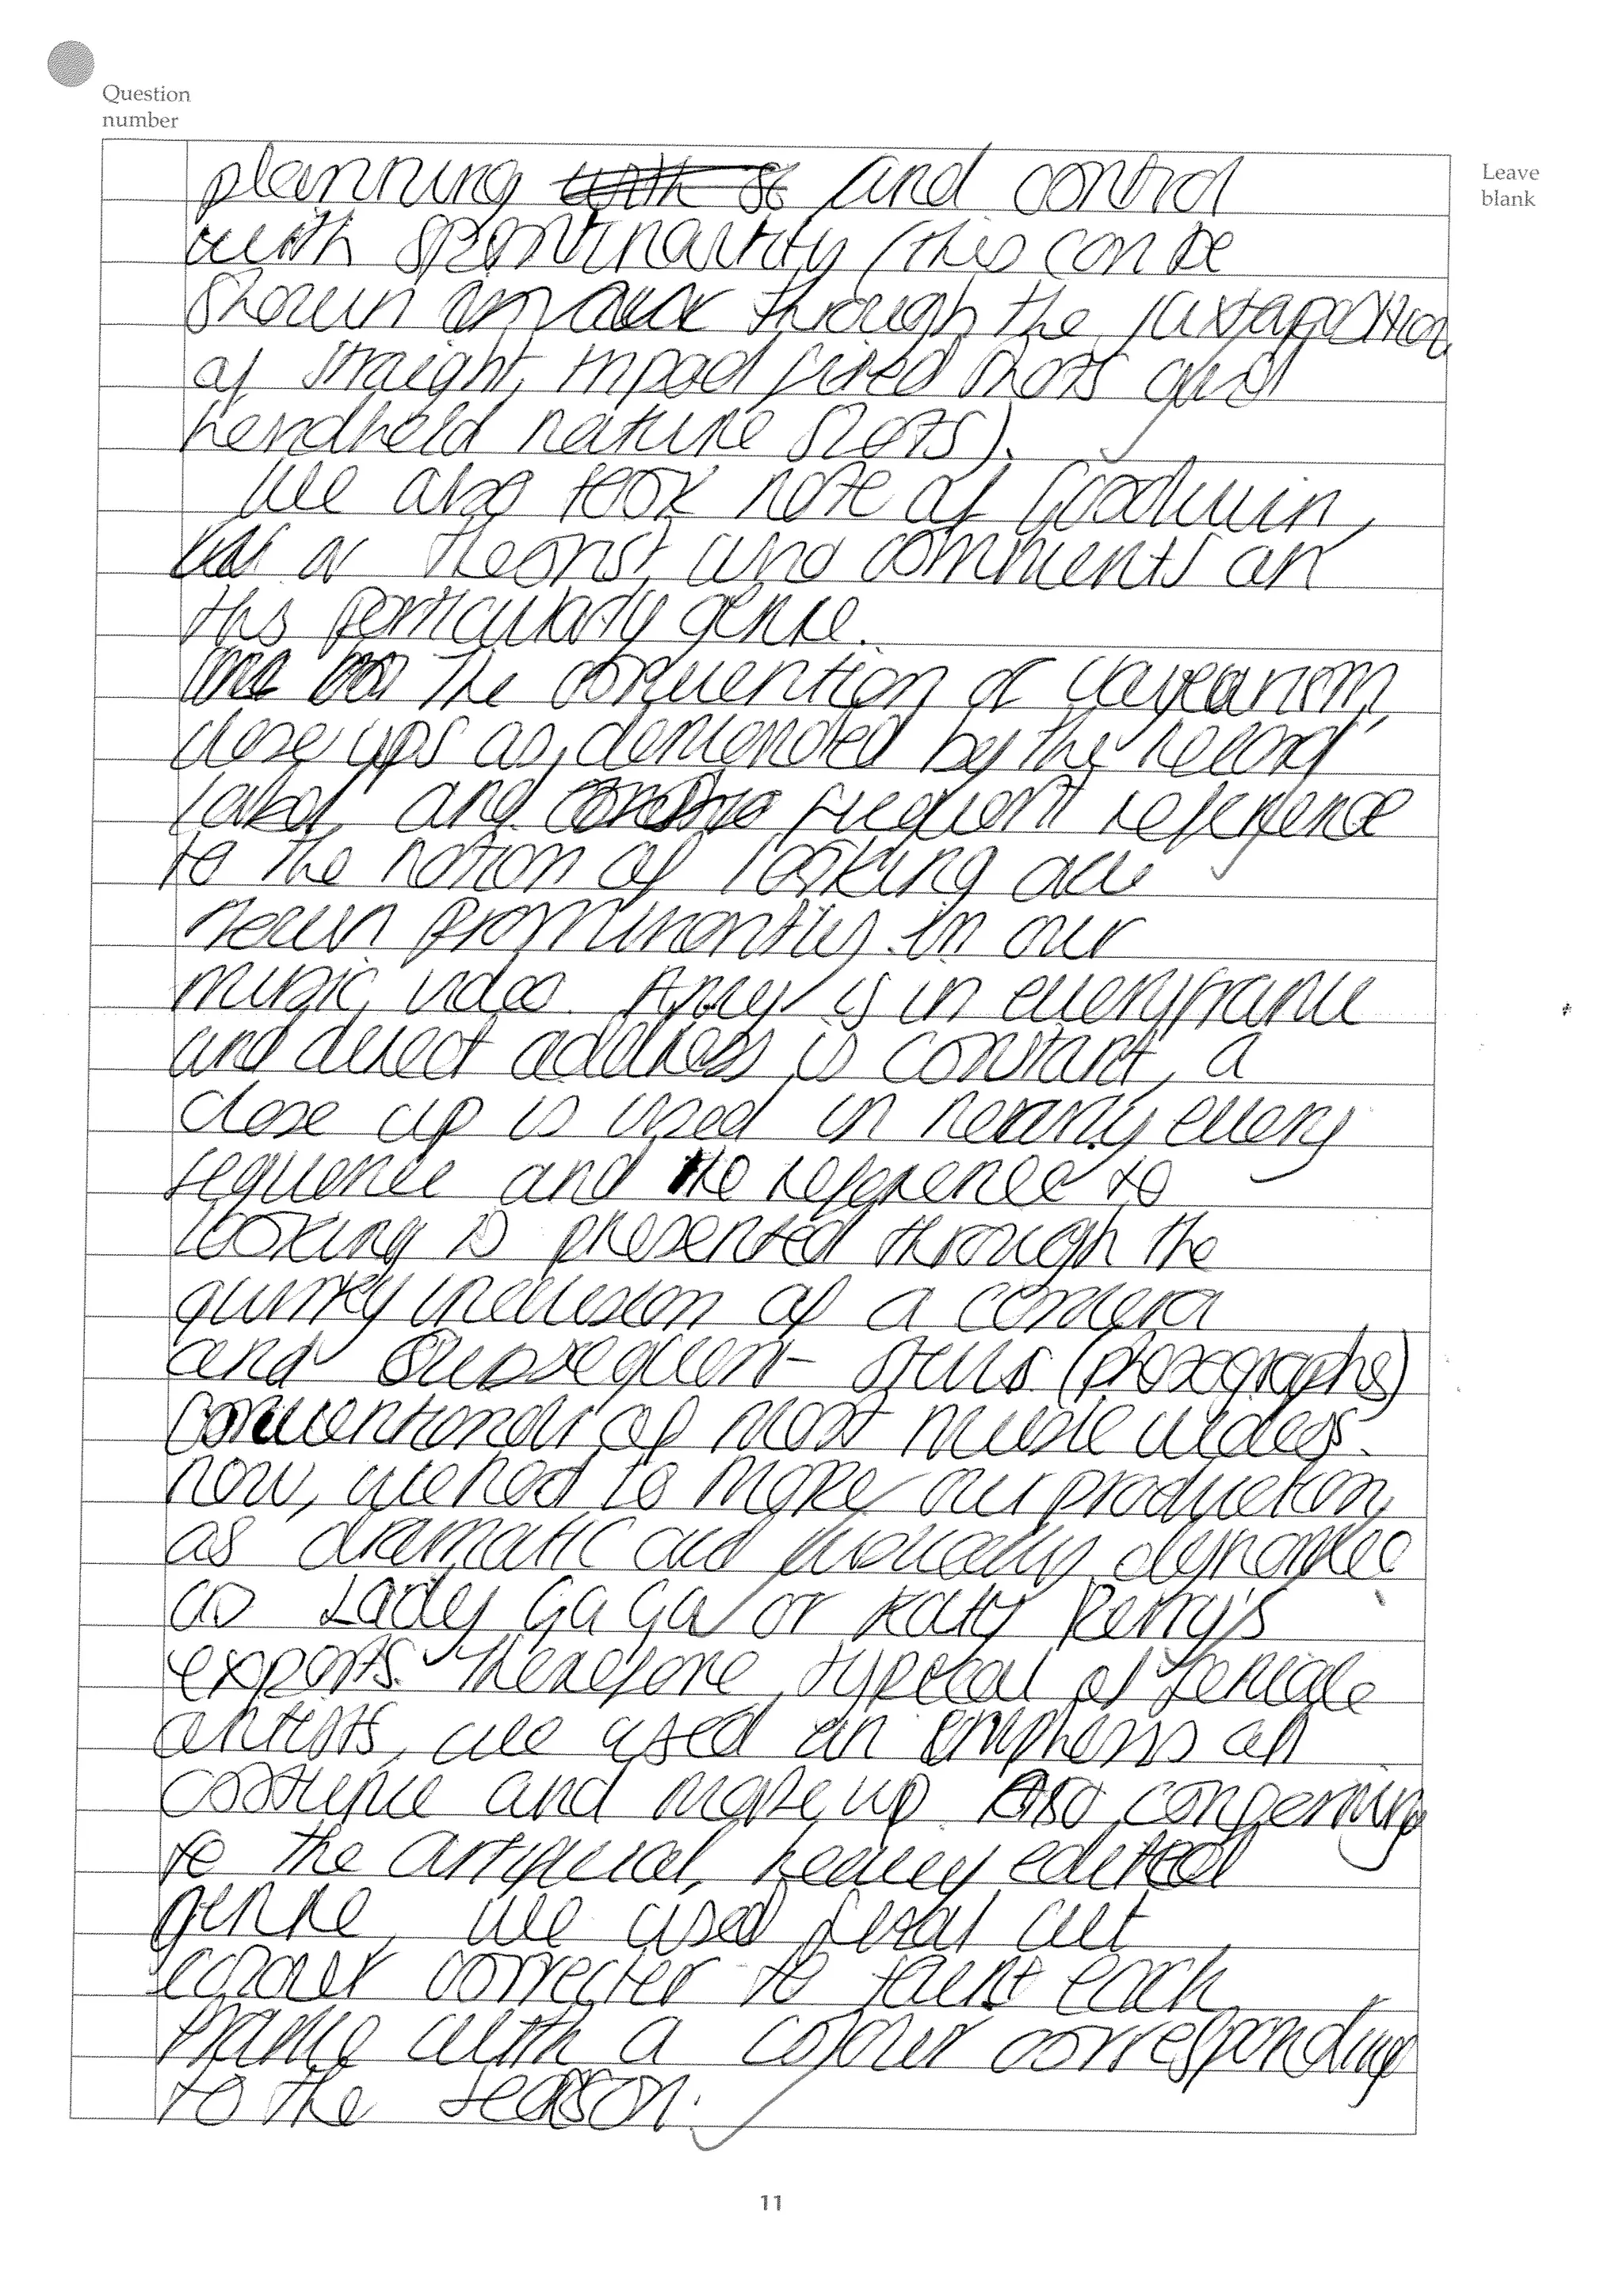 Question
number
Leave
blank
planning and control
with spontinaeity (this can be
shown through the juxtaposition
of straight, tripod fixed shots and
handheld nature shots).
We also took note of Goodwin,
a theorist who comments on
this particularly genre.
The convention of voyeurism,
close ups as demanded by the 'record
label' and frequent reference
to the notion of looking are
herein prominantly in our
music video. Amy is in every frame
and direct address is constant, a
close up is used in nearly every
sequence and the reference to
looking is presented through the
quirky inclusion of a camera
and subsequent stills (photographs)
conventional of most music videos
now, we had to make our production
as dramatic and visually dynamic
as Lady GaGa or Katy Perry's
exports. Therefore, typical of female
artists, we used an emphasis on
costume and make up. Also conperning
to the artificial, heavily edited
genre, we used final cut
colour correcter to taint each
frame with a colour corresponding
to the season.
11